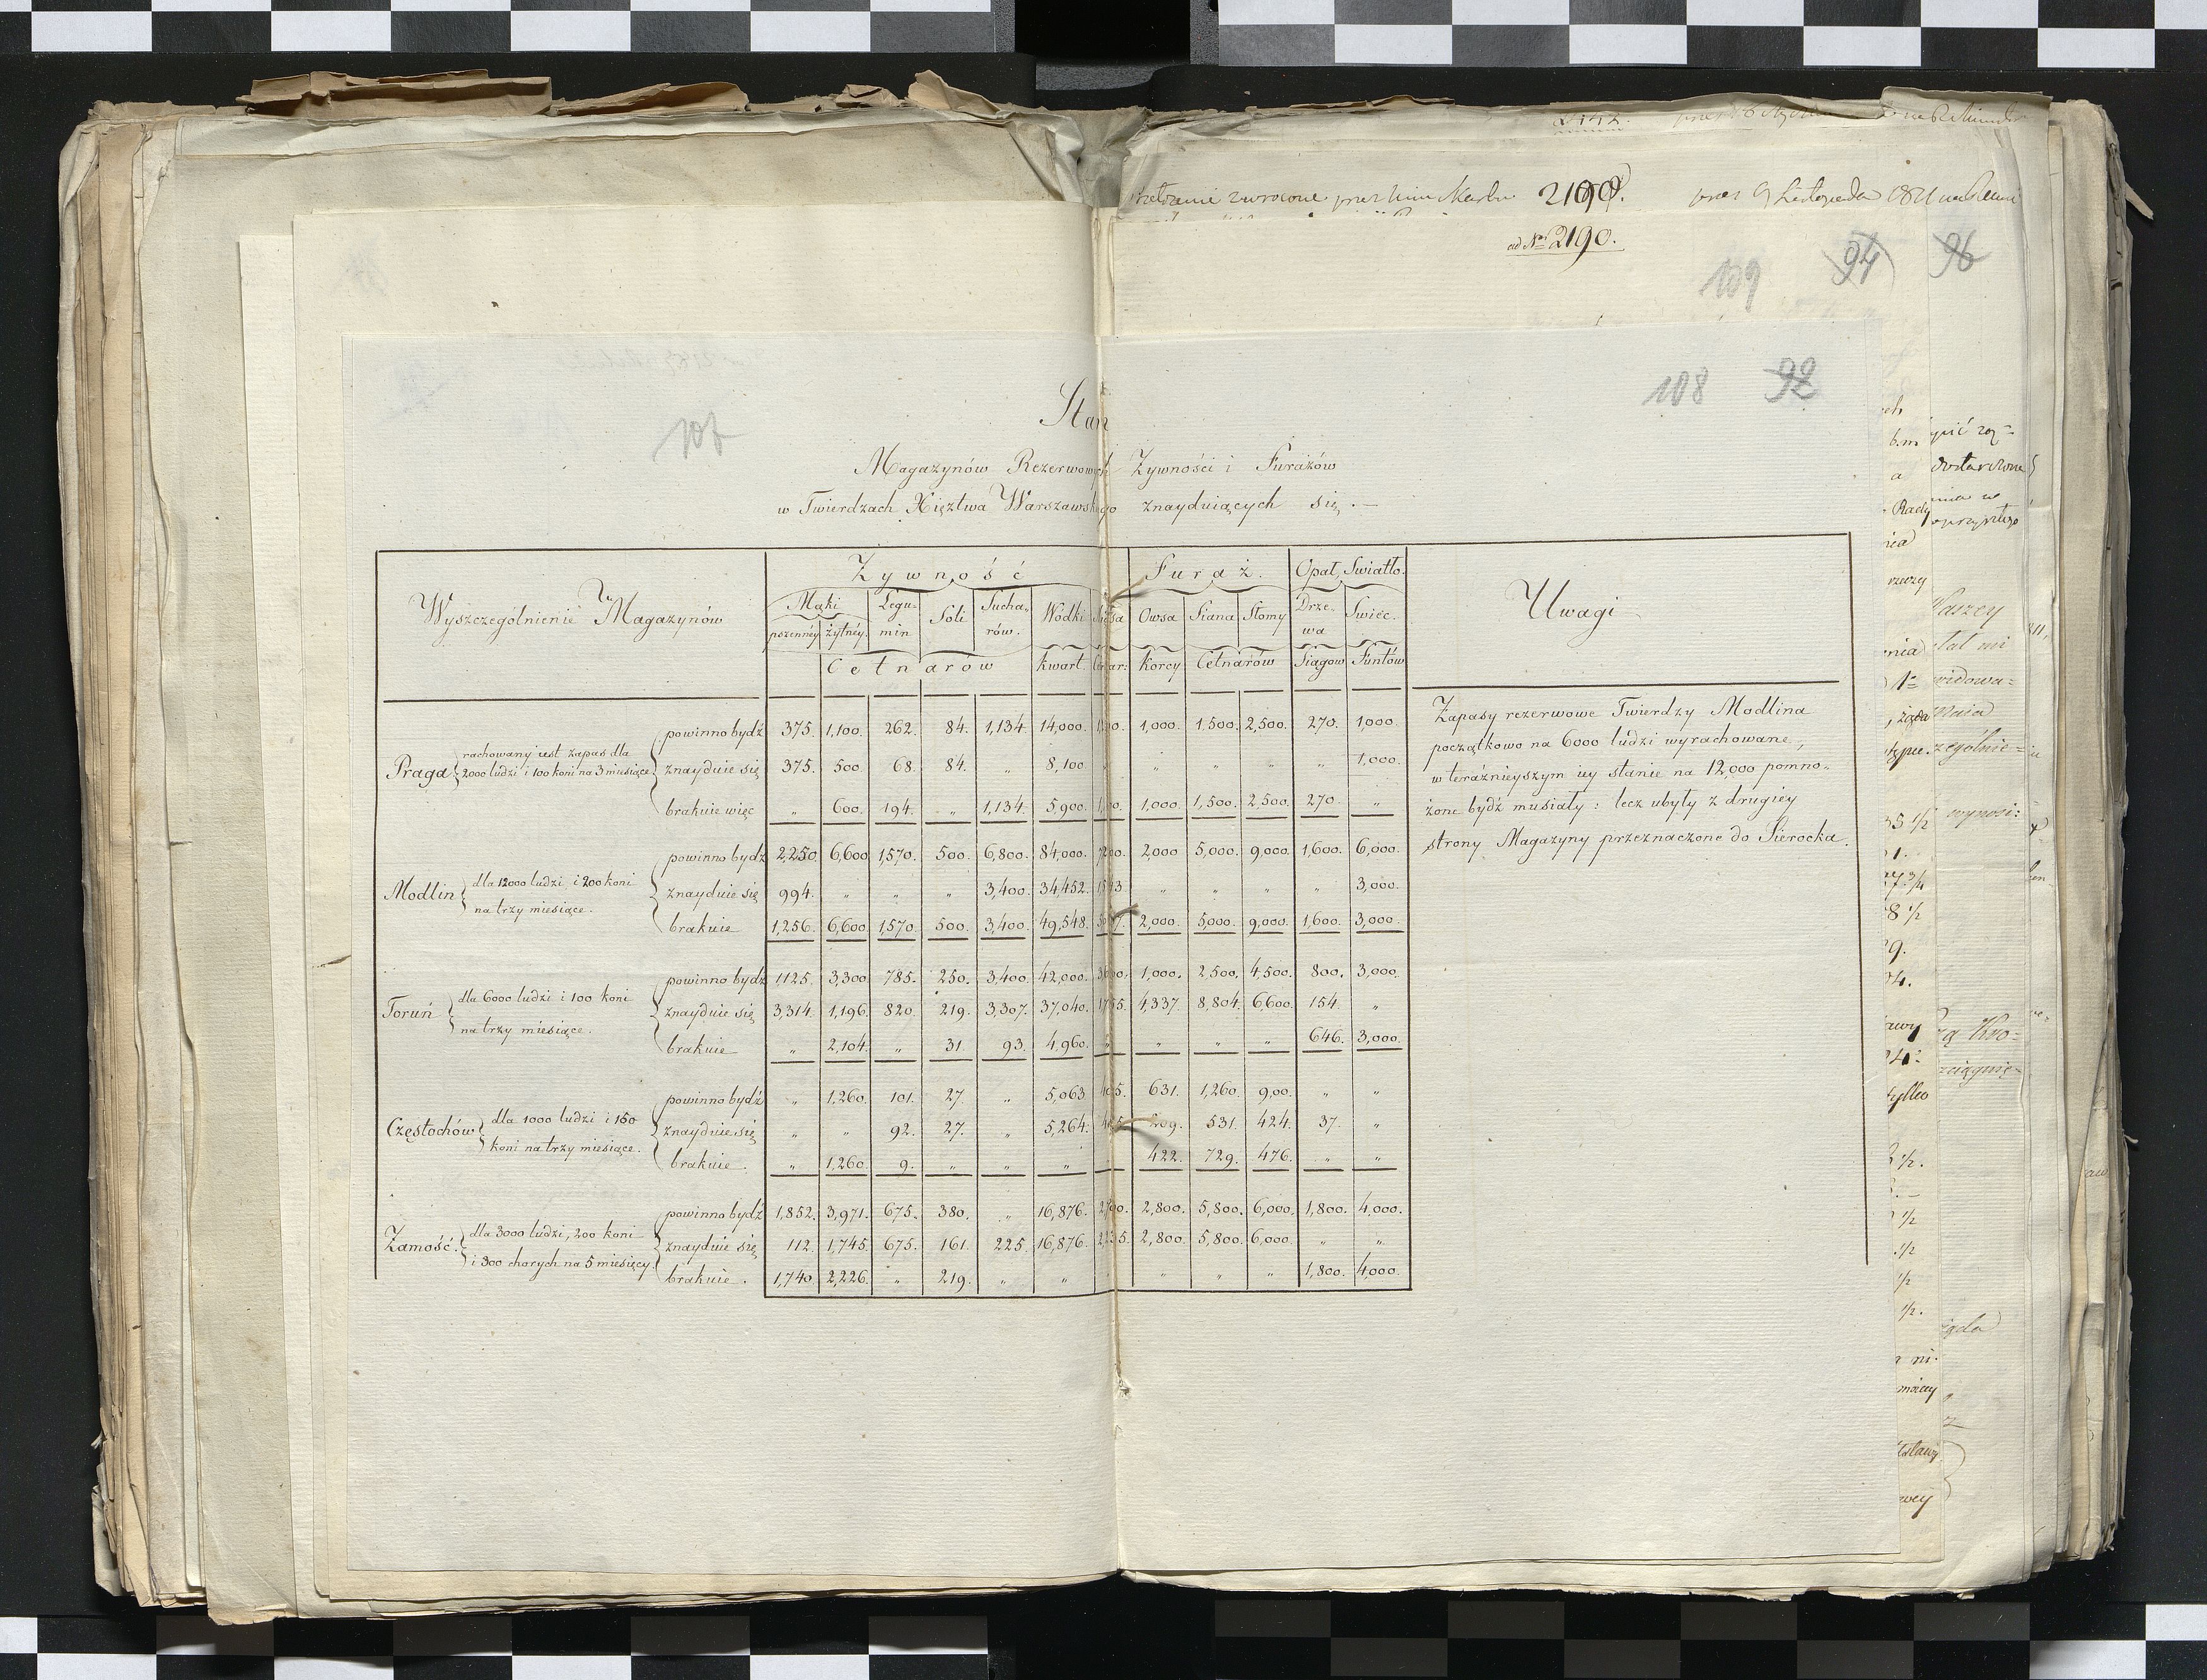 przez 9 Listopada 1811
2190.
ad Nr 2190.
109 94 96
108 92
107
Stan
Magazynów Rezerwowych Zywności i Furażów
w Twierdzach Xięztwa Warszawskiego znayduiących się .—
Wyszczególnienie Magazynów
Zywność
Furaż.
Opał, Swiatło.
Uwagi
Mąki Legumin Soli Sucharów. Wódki Owsa Siana Słomy Drzewa Swiec.
pszennéy żytnéy
Cetnarów kwart korcy Cetnarów Siągow Funtów
Praga rachowany iest zapas dla 2000 ludzi i 100 koni na 3 miesiące
powinno bydź 375. 1,100. 262. 84. 1,134. 14,000. 1,000. 1,500. 2,500. 270. 1,000.
znayduie się 375. 500. 68. 84. " 8,100 " " " " 1,000.
brakuie więc " 600. 194. " 1,134. 5,900. 1,000. 1,500. 2,500. 270. "
Modlin dla 12000 ludzi i 200 koni na trzy miesiące.
powinno bydź 2,250. 6,600. 1,570. 500. 6,800. 84,000. 2,000 5,000. 9,000. 1,600. 6,000.
znayduie się 994. " " " 3,400. 34,452. " " " " 3,000.
brakuie 1,256. 6,600. 1,570. 500. 3,400. 49,548. 2,000. 5,000. 9,000. 1,600. 3,000.
Toruń dla 6000 ludzi i 100 koni na trzy miesiące.
powinno bydź 1,125. 3,300. 785. 250. 3,400. 42,000. 1,000. 2,500. 4,500. 800. 3,000.
znayduie się 3,314. 1,196. 820. 219. 3,307. 37,040. 4,337. 8,804. 6,600. 154. "
brakuie " 2,104. " 31 93. 4,960. " " " 646. 3,000.
Częstochów dla 1000 ludzi i 150 koni na trzy miesiące.
powinno bydź " 1,260. 101. 27. " 5,063 631. 1,260. 9,00. " "
znayduie się " " 92. 27. " 5,264. 209. 531. 424. 37. "
brakuie. " 1,260. 9. " " " 422. 729. 476. " "
Zamość. dla 3000 ludzi, 200 koni i 300 chorych na 5 miesięcy
powinno bydź 1,852. 3,971. 675. 380. " 16,876. 2,800. 5,800. 6,000. 1,800. 4,000.
znayduie się 112. 1,745. 675. 161. 225. 16,876. 2,800. 5,800. 6,000. " "
brakuie. 1,740. 2,226. " 219. " " " " " 1,800. 4,000.
Zapasy rezerwowe Twierdzy Modlina
początkowo na 6000 ludzi wyrachowane,
w teraźnieyszym iey stanie na 12,000 pomno-
żone bydź musiały: lecz ubyły z drugiey
strony Magazyny przeznaczone do Sierocka.